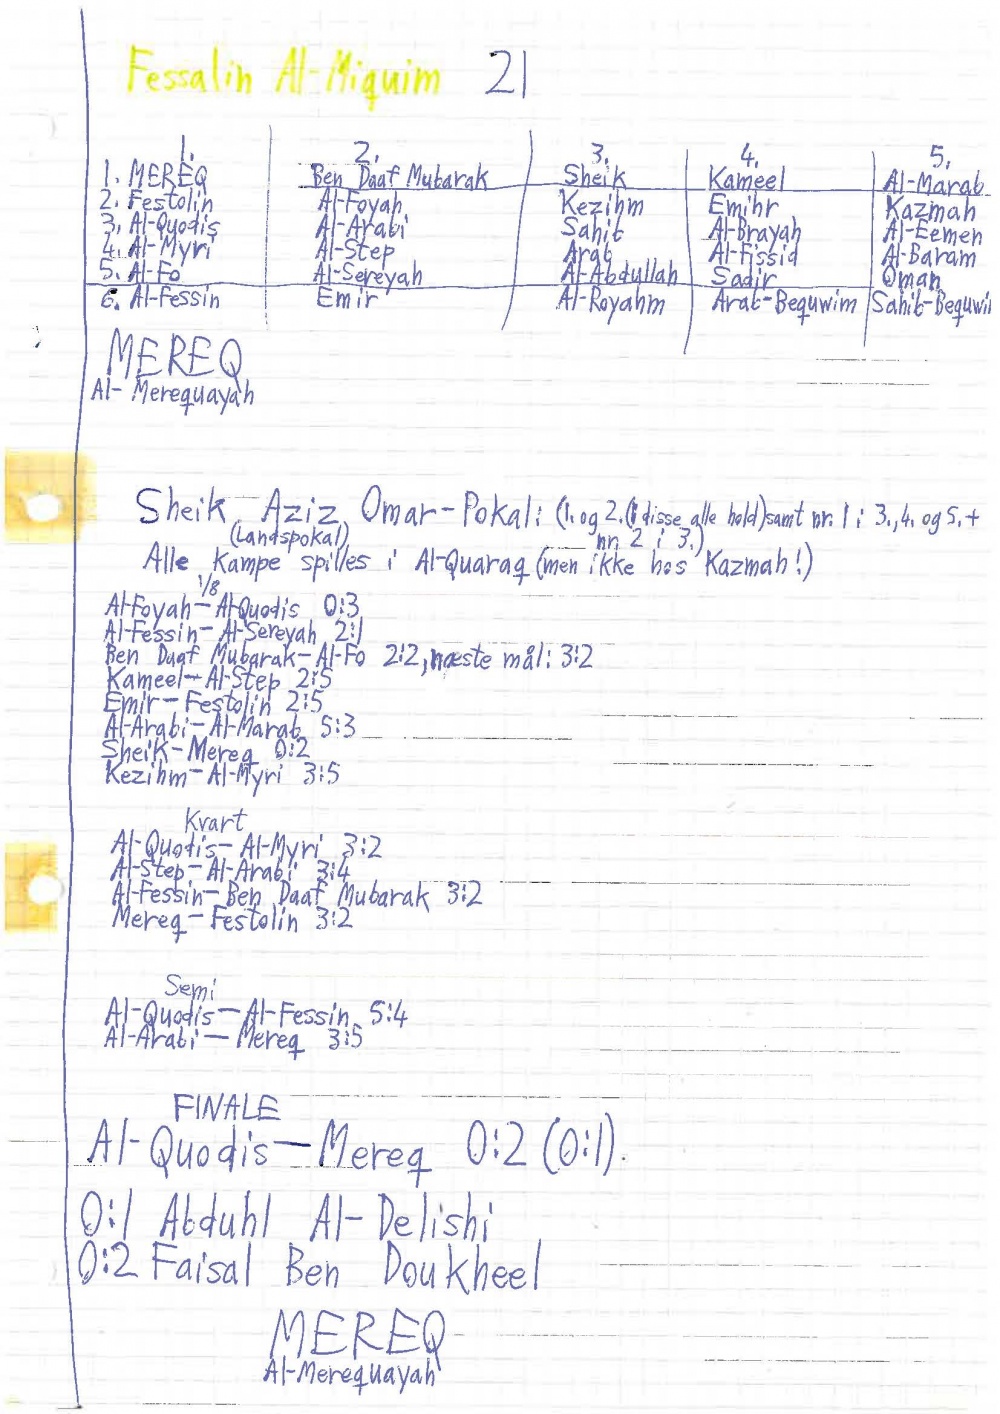 Fessalin Al-Miquim 21
1. 2. 3. 4. 5.
1. MEREQ Ben Daaf Mubarak Sheik Kameel Al-Marab
2. Festolin Al-Foyah Kezihm Emihr Kazmah
3. Al-Quodis Al-Arabi Sahib Al-Brayah Al-Eemen
4. Al-Myri Al-Step Arab Al-Fissid Al-Baram
5. Al-Fo Al-Sereyah Al-Abdullah Sadir Oman
6. Al-Fessin Emir Al-Royahm Arab-Bequwim Sahib-Bequwi
MEREQ
Al-Merequayah
Sheik Aziz Omar-Pokal: (1. og 2. (i disse alle hold) samt nr. 1 i 3., 4. og 5. +
(Landspokal) nr. 2 i 3.)
Alle kampe spilles i Al-Quaraq (men ikke hos Kazmah!)
1/8
Al-Foyah-Al-Quodis 0:3
Al-Fessin-Al-Sereyah 2:1
Ben Daaf Mubarak-Al-Fo 2:2, næste mål: 3:2
Kameel-Al-Step 2:5
Emir-Festolin 2:5
Al-Arabi-Al-Marab 5:3
Sheik-Mereq 0:2
Kezihm-Al-Myri 3:5
Kvart
Al-Quodis-Al-Myri 3:2
Al-Step-Al-Arabi 3:4
Al-Fessin-Ben Daaf Mubarak 3:2
Mereq-Festolin 3:2
Semi
Al-Quodis-Al-Fessin 5:4
Al-Arabi-Mereq 3:5
FINALE
Al-Quodis-Mereq 0:2 (0:1).
0:1 Abduhl Al-Delishi
0:2 Faisal Ben Doukheel
MEREQ
Al-Merequayah